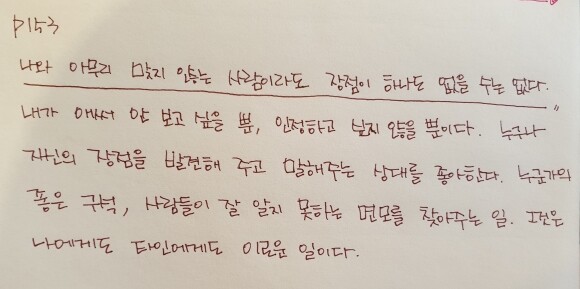 P153
나와 아무리 맞지 않는 사람이라도 장점이 하나도 없을 수는 없다.
내가 애써 안 보고 싶을 뿐, 인정하고 싶지 않을 뿐이다. 누구나
자신의 장점을 발견해 주고 말해주는 상대를 좋아한다. 누군가의
좋은 구석, 사람들이 잘 알지 못하는 면모를 찾아주는 일. 그것은
나에게도 타인에게도 이로운 일이다.